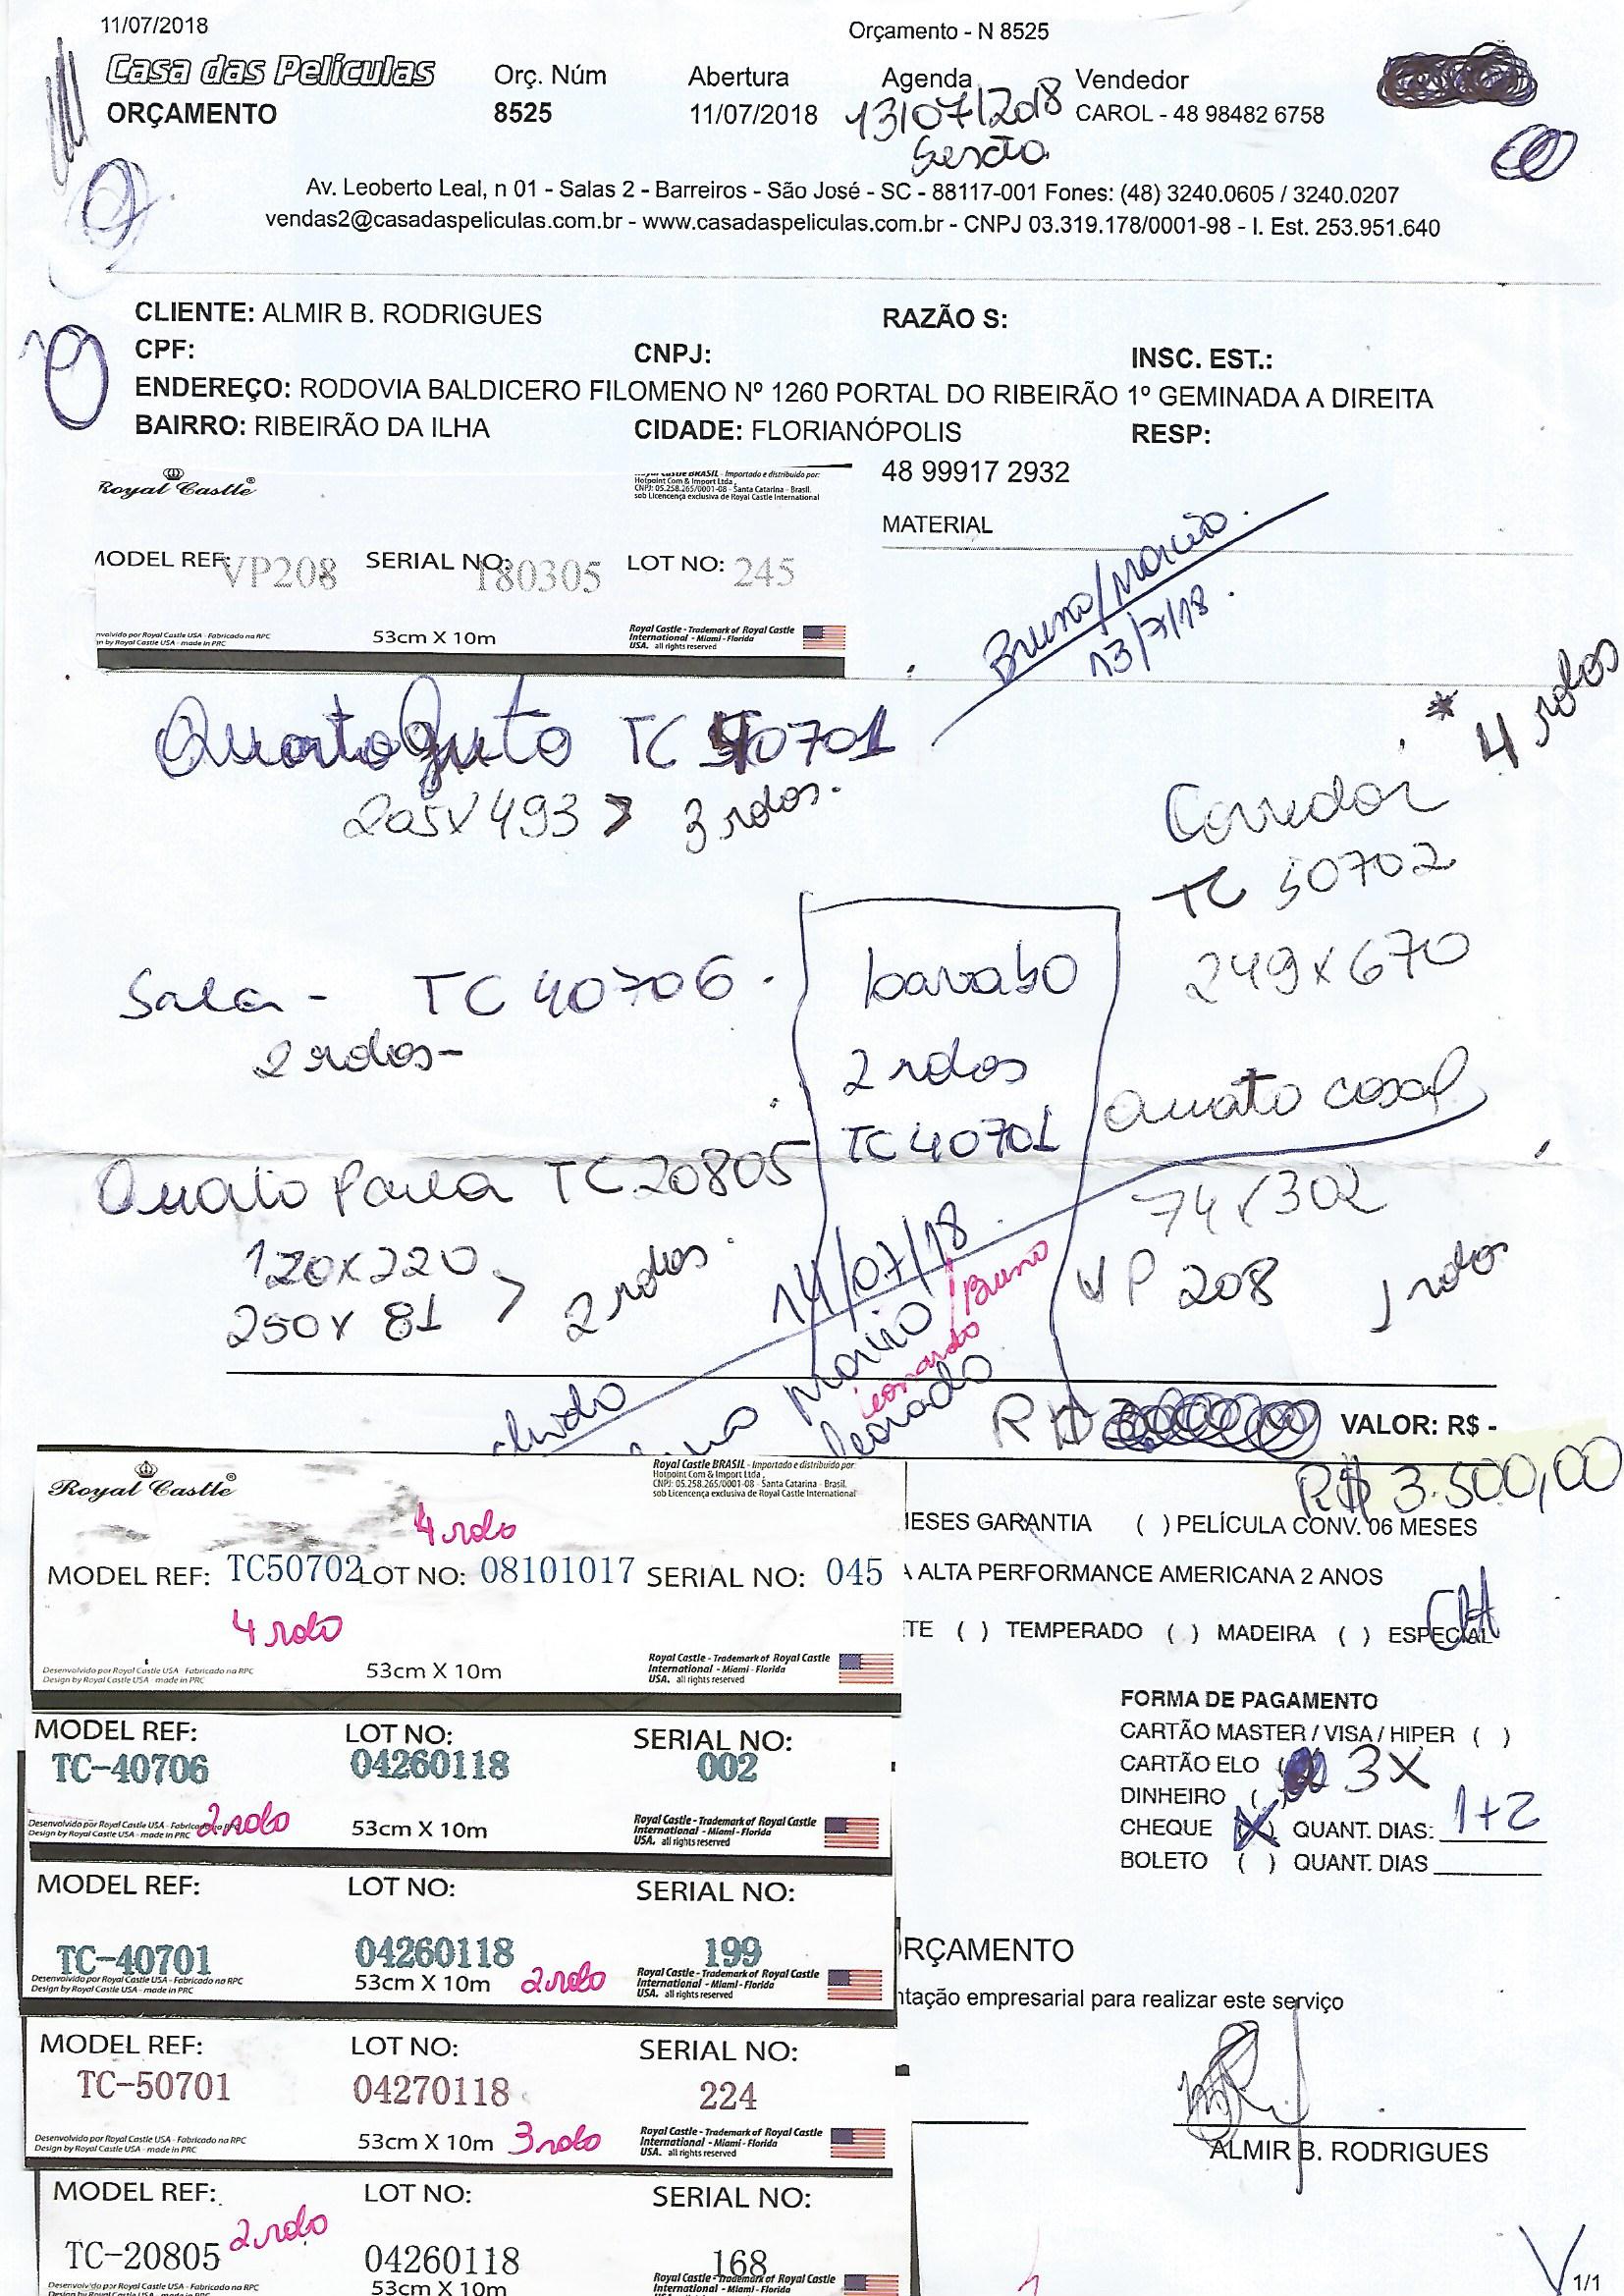 11/07/2018
Orçamento - N 8525
Casa das Películas
ORÇAMENTO
Orç. Núm
8525
Abertura
11/07/2018
Agenda
13/07/2018
Sexta
Vendedor
CAROL - 48 98482 6758
Av. Leoberto Leal, n 01 - Salas 2 - Barreiros - São José - SC - 88117-001 Fones: (48) 3240.0605 / 3240.0207
vendas2@casadaspeliculas.com.br - www.casadaspeliculas.com.br - CNPJ 03.319.178/0001-98 - I. Est. 253.951.640
CLIENTE: ALMIR B. RODRIGUES
RAZÃO S:
CPF:
CNPJ:
INSC. EST.:
ENDEREÇO: RODOVIA BALDICERO FILOMENO Nº 1260 PORTAL DO RIBEIRÃO 1º GEMINADA A DIREITA
BAIRRO: RIBEIRÃO DA ILHA
CIDADE: FLORIANÓPOLIS
RESP:
48 99917 2932
MATERIAL
Royal Castle®
Royal Castle BRASIL - Importado e distribuido por:
Hotpoint Com & Import Ltda
CNPJ: 05.258.265/0001-08 - Santa Catarina - Brasil.
sob Licencença exclusiva de Royal Castle International
MODEL REF: VP208 SERIAL NO: 180305 LOT NO: 245
nvolvido por Royal Castle USA - Fabricado na RPC
n by Royal Castle USA - made in PRC
53cm X 10m
Royal Castle - Trademark of Royal Castle
International - Miami - Florida
USA. all rights reserved
Bruno/
13/7/18.
Quarto TC 50701
205x493 > 3 rolos.
* 4 rolos
Corredor
TC 50702
249x670
Sala - TC 40706.
2 rolos-
Lavabo
2 rolos
TC40701
Quarto casal
74x302
VP 208 1 rolos
Quarto Paula TC20805
120x220
250x 81 > 2 rolos.
14/07/18
/Bruno
Leonardo
R$
VALOR: R$ -
R$ 3.500,00
Royal Castle®
Royal Castle BRASIL - Importado e distribuido por:
Hotpoint Com & Import Ltda
CNPJ: 05.258.265/0001-08 - Santa Catarina - Brasil.
sob Licencença exclusiva de Royal Castle International
4 rolo
MODEL REF: TC50702 LOT NO: 08101017 SERIAL NO: 045
4 rolo
Desenvolvido por Royal Castle USA - Fabricado na RPC
Design by Royal Castle USA - made in PRC
53cm X 10m
Royal Castle - Trademark of Royal Castle
International - Miami - Florida
USA. all rights reserved
IESES GARANTIA ( ) PELÍCULA CONV. 06 MESES
A ALTA PERFORMANCE AMERICANA 2 ANOS
TE ( ) TEMPERADO ( ) MADEIRA ( ) ESPECIAL
MODEL REF: LOT NO: SERIAL NO:
TC-40706 04260118 002
Desenvolvido por Royal Castle USA - Fabricado na RPC
Design by Royal Castle USA - made in PRC
2 rolo
53cm X 10m
Royal Castle - Trademark of Royal Castle
International - Miami - Florida
USA. all rights reserved
FORMA DE PAGAMENTO
CARTÃO MASTER / VISA / HIPER ( )
CARTÃO ELO ( 3X
DINHEIRO (
CHEQUE (X) QUANT. DIAS: 1+2
BOLETO ( ) QUANT. DIAS
MODEL REF: LOT NO: SERIAL NO:
TC-40701 04260118 199
Desenvolvido por Royal Castle USA - Fabricado na RPC
Design by Royal Castle USA - made in PRC
53cm X 10m 2 rolo
Royal Castle - Trademark of Royal Castle
International - Miami - Florida
USA. all rights reserved
RÇAMENTO
ntação empresarial para realizar este serviço
MODEL REF: LOT NO: SERIAL NO:
TC-50701 04270118 224
Desenvolvido por Royal Castle USA - Fabricado na RPC
Design by Royal Castle USA - made in PRC
53cm X 10m 3 rolo
Royal Castle - Trademark of Royal Castle
International - Miami - Florida
USA. all rights reserved
ALMIR B. RODRIGUES
MODEL REF: LOT NO: SERIAL NO:
TC-20805 2 rolo 04260118 168
Desenvolvido por Royal Castle USA - Fabricado na RPC
Design by Royal Castle USA - made in PRC
53cm X 10m
Royal Castle - Trademark of Royal Castle
International - Miami - Florida
1/1